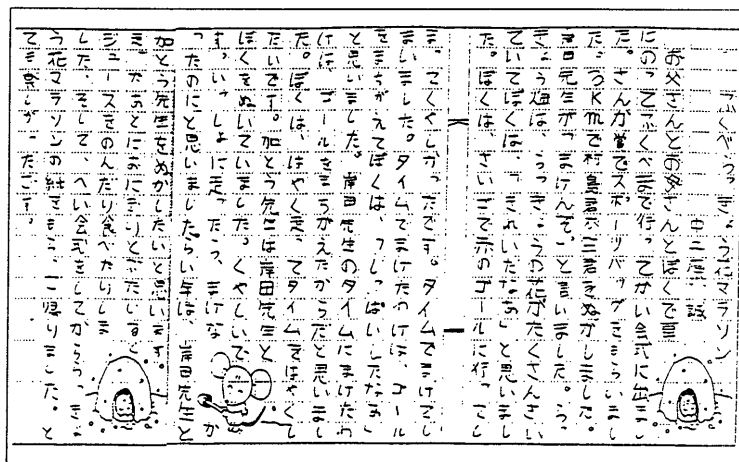 ふくべらっきょう花マラソン
中三 原 誠
お父さんとお母さんとぼくで車
にのってふくべまで行ってかい会式に出まし
た。さんか賞でスポーツバッグをもらいまし
た。3Kmで村島君と三君をぬかしました。
岸田先生が「まけんぞ。」と言いました。らっ
きょう畑は、らっきょうの花がたくさんさい
ていてぼくは、「きれいだなあ」と思いまし
た。ぼくは、さいごで赤のゴールに行ってし
まってくやしかったです。タイムでまけてし
まいました。タイムでまけたわけは、ゴール
をまちがえてぼくは、「しっぱいしたなあ」
と思いました。岸田先生のタイムにまけたわ
けは、ゴールをまちがえたからだと思いまし
た。ぼくは、はやく走ってタイムをはやくし
たいです。加とう先生は岸田先生と
ぼくをぬいていました。くやしいで
す。いっしょに走ったら、まけなか
ったのにと思いました。らい年は、岸田先生と
加とう先生をぬかしたいと思います。
そのあとにおにぎりとぶたじると
ジュースをのんだり食べたりしま
した。そして、へい会式をしてかららっきょ
う花マラソンの絵をもらって帰りました。と
ても楽しかったです。